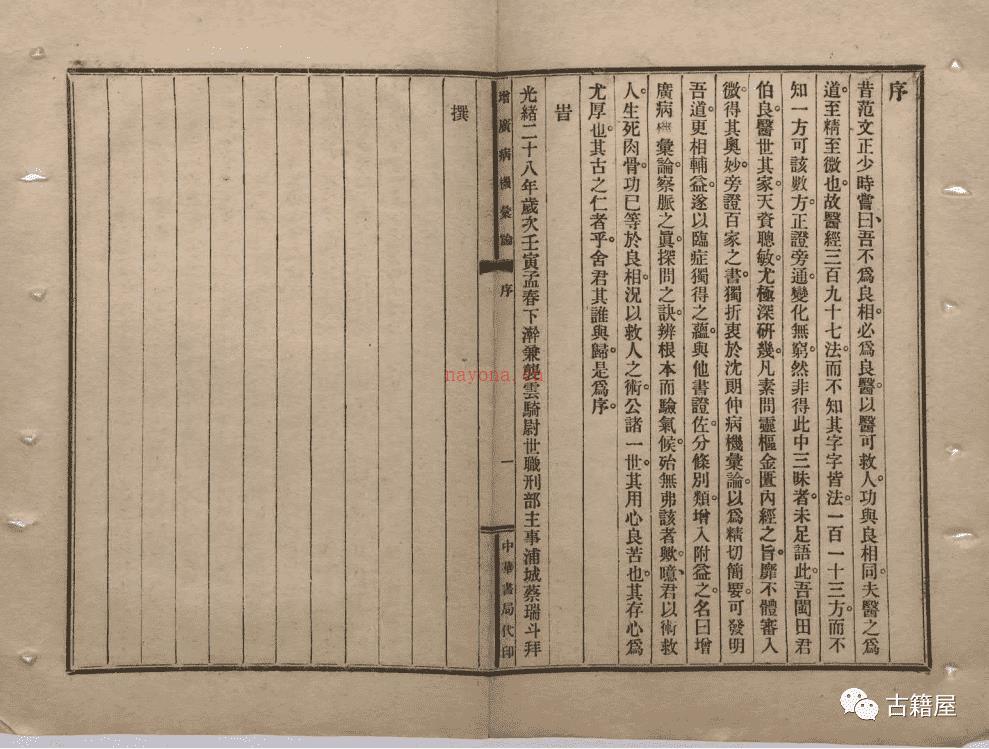 序
昔范文正少時嘗曰吾不爲良相必爲良醫以醫可救人功與良相同夫醫之爲
道至精至微也故醫經三百九十七法而不知其字字皆法一百一十三方而不
知一方可該數方正證旁通變化無窮然非得此中三昧者未足語此吾閩田君
伯良醫世其家天資聰敏尤極深研幾凡素問靈樞金匱內經之旨靡不體審入
微得其奧妙旁證百家之書獨折衷於沈朗仲病機彙論以爲精切簡要可發明
吾道更相輔益遂以臨症獨得之蘊與他書證佐分條別類增入附益之名曰增
廣病機彙論察脈之眞探問之訣辨根本而驗氣候殆無弗該者歟噫君以術救
人生死肉骨功已等於良相況以救人之術公諸一世其用心良苦也其存心爲
尤厚也其古之仁者乎舍君其誰與歸是爲序
旹
光緒二十八年歲次壬寅孟春下澣兼襲雲騎尉世職刑部主事浦城蔡瑞斗拜
增廣病機彙論 序 一 中華書局代印
撰
nayona.cn
古籍屋